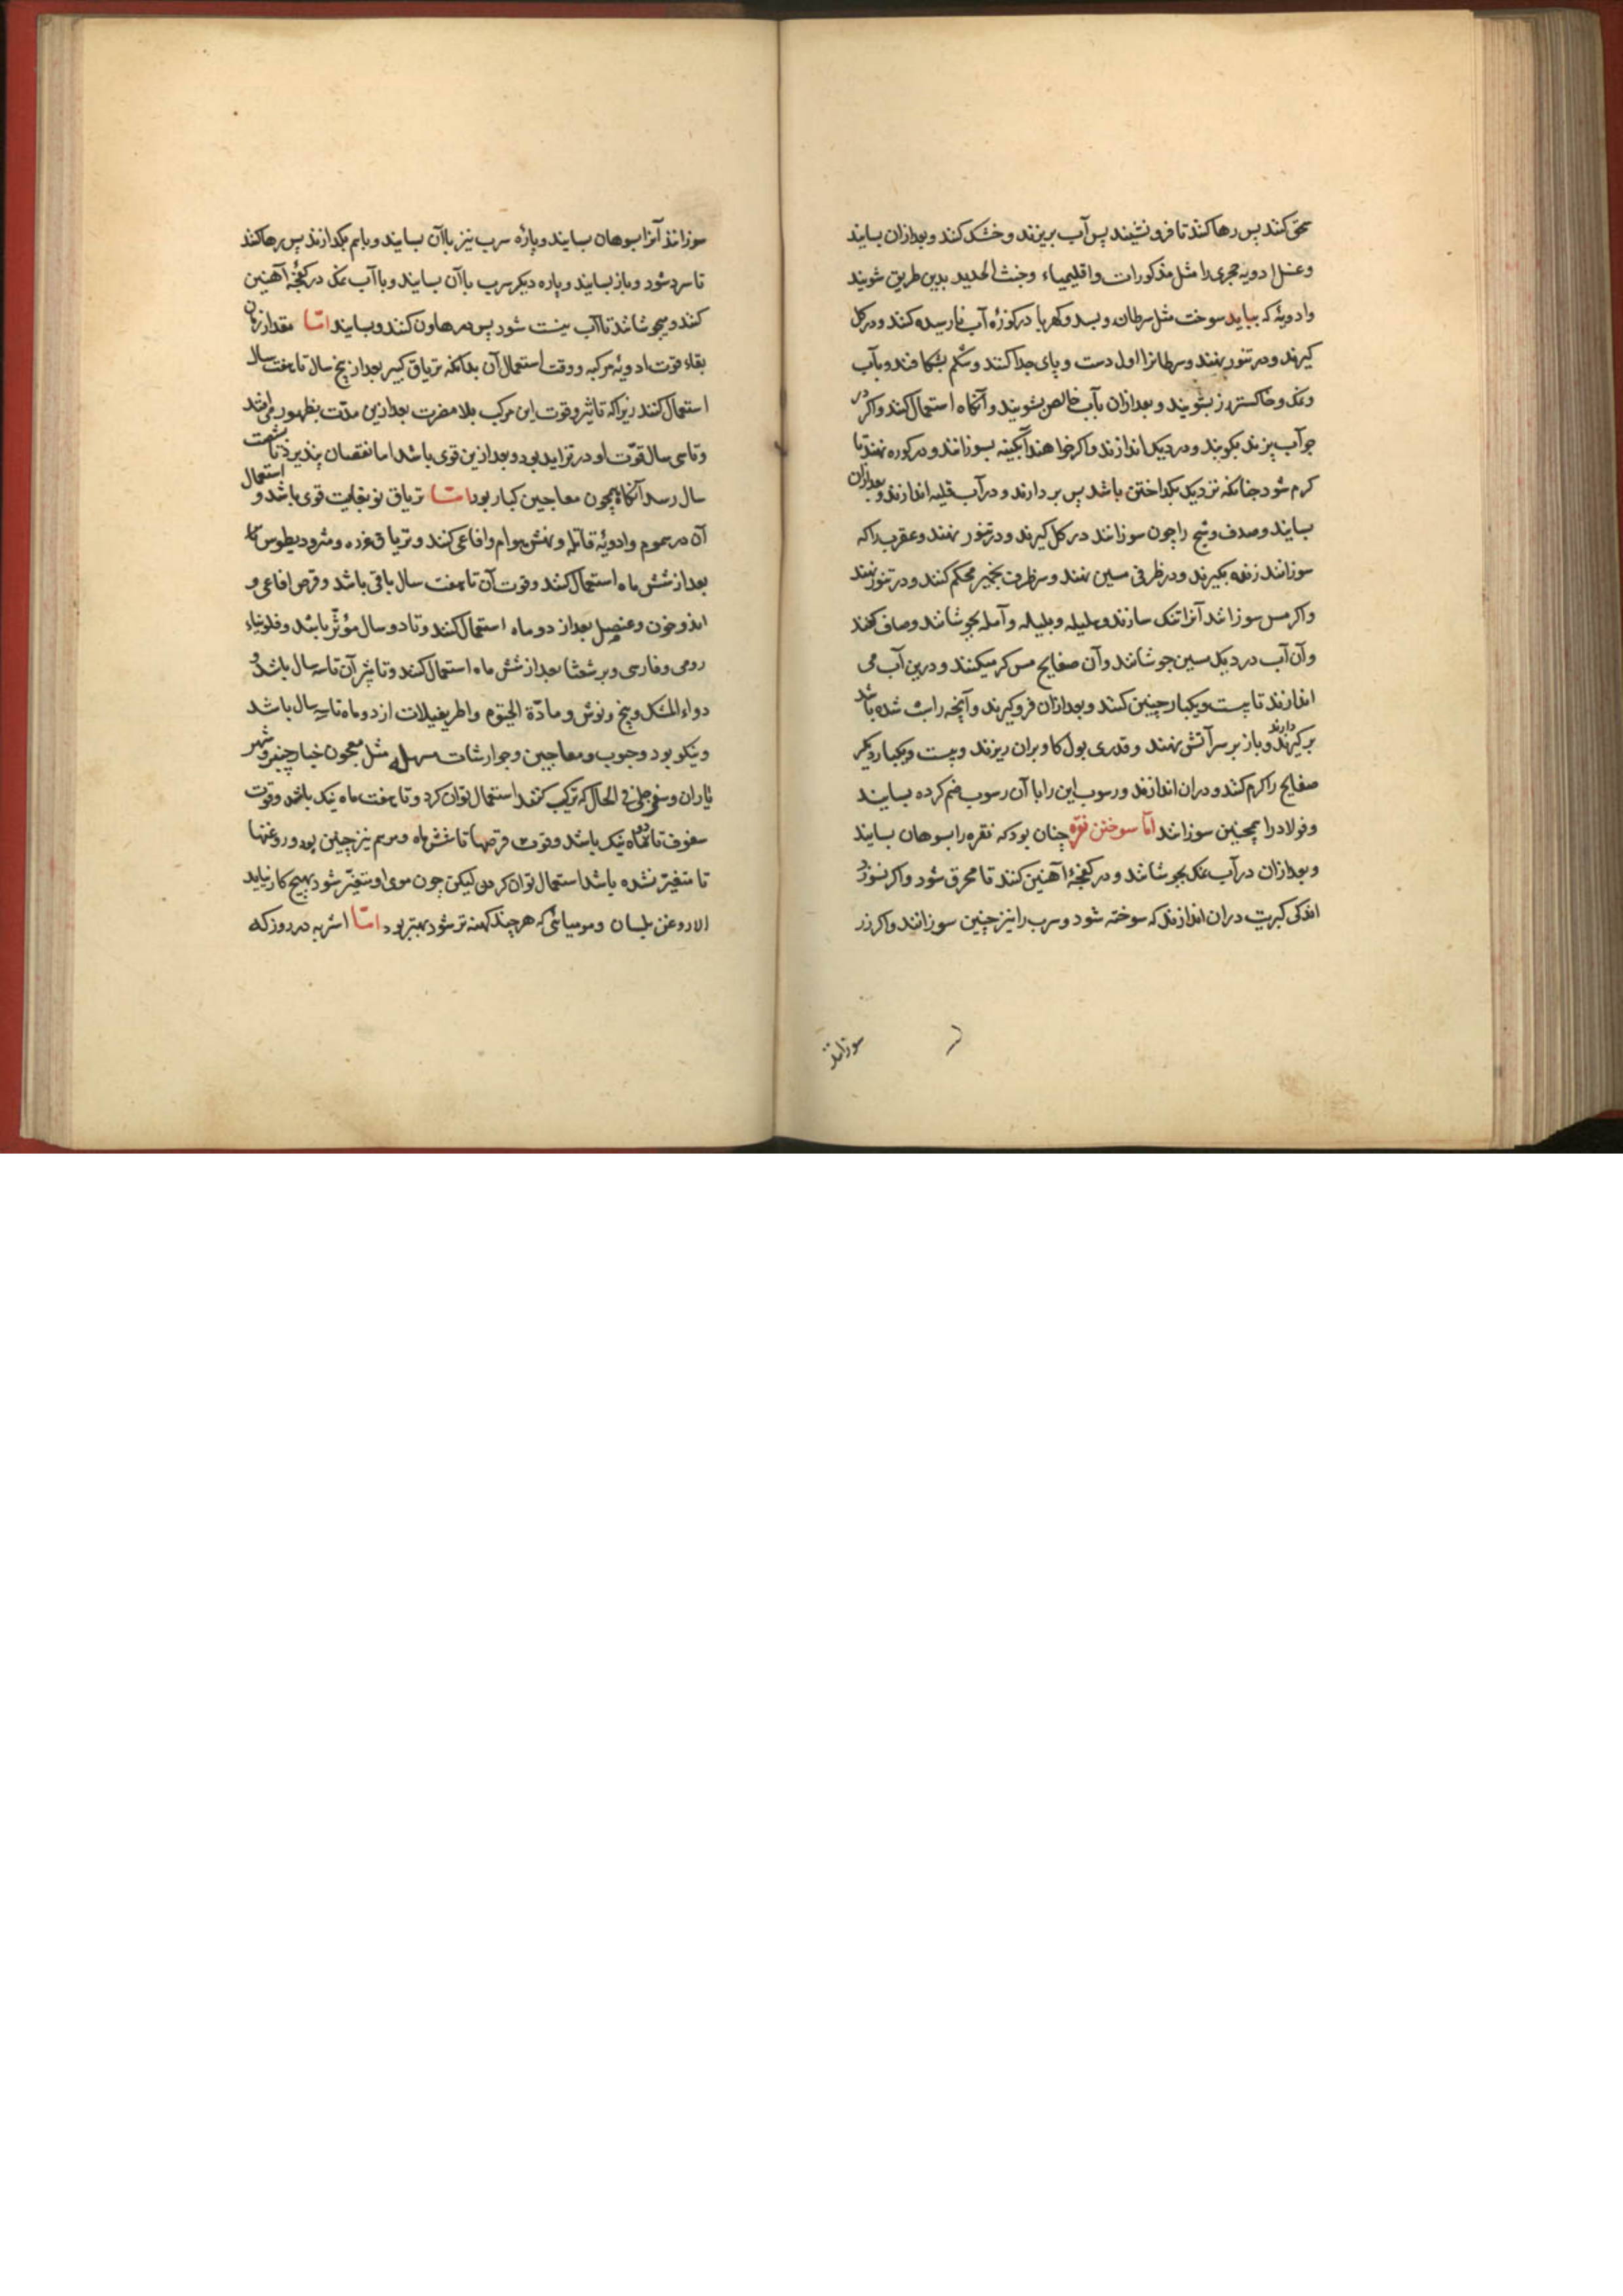 سحق کنند پس رها کنند تا فرو نشیند پس آب بریزند و خشک کنند و بعد ازان بسایند
و غسل ادویه حجری را مثل مذکورات و اقلیمیاء و خبث الحدید بدین طریق شویند
و ادویهٔ که بباید سوخت مثل سرطان و بسد و کهربا در کوزهٔ آب نارسیده کنند و در کل
کیرند و در تنور نهند و سرطانرا اول دست و پای جدا کنند و شکم بشکافند و بآب
و نمک و خاکستر رز بشویند و بعد ازان بآب خالص بشویند و آنکاه استعمال کنند و اکر در
جو آب پزند بکوبند و در دیک اندازند و اکر خواهند آبکینه بسوزانند و در کوره نهند تا
کرم شود چنانکه نزدیک بکداختن باشد پس بردارند و در آب قلیه اندازند و بعد ازان
بسایند و صدف و شبح را چون سوزانند در کل کیرند و در تنور نهند و عقرب را که
سوزانند زنده بکیرند و در ظرفی مسین نهند و سر ظرف بخمیر محکم کنند و در تنور نهند
و اکر مس سوزانند آنرا تنک سازند و هلیله و بلیله و آمله بجوشانند و صاف کنند
و آن آب در دیک مسین جوشانند و آن صفایح مس کرم میکنند و درین آب می
اندازند تا بیست و یکبار چنین کنند و بعد ازان فرو کیرند و آنچه راسب شده باشد
بر کیرند دارند و باز بر سر آتش نهند و قدری بول کاو بران ریزند و بیست و یکبار دیکر
صفایح را کرم کنند و دران اندازند و رسوب این را با آن رسوب ضم کرده بسایند
و فولاد را همچنین سوزانند اما سوختن نقره چنان بود که نقره را بسوهان بسایند
و بعد ازان در آب نمک بجوشانند و در کفچهٔ آهنین کنند تا محرق شود و اکر نسوزد
اندکی کبریت دران اندازند که سوخته شود و سرب را نیز چنین سوزانند و اکر زر
سوزانند
سوزانند آنرا بسوهان بسایند و پارهٔ سرب نیز باآن بسایند و باهم بکدازند پس رها کنند
تا سرد شود و باز بسایند و پاره دیکر سرب باآن بسایند و باآب نمک در کفچهٔ آهنین
کنند و بجوشانند تا آب نیست شود پس در هاون کنند و بسایند اما مقدار زمان
بقاء قوت ادویهٔ مرکبه و وقت استعمال آن بدانکه تریاق کبیر بعد از پنج سال تا هفت سال
استعمال کنند زیرا که تاثیر و قوت این مرکب بلا مضرت بعد ازین مدت بظهور می افتد
و تا سی سال قوّت او در تزاید بود و بعد ازین قوی باشد اما نقصان پذیرد تا بشصت
سال رسد آنکاه همچون معاجین کبار بود اما تریاق نو بغایت قوی باشد و استعمال
آن در سموم و ادویهٔ قاتله و نهش هوام و افاعی کنند و تریاق عزره و مثرودیطوس را
بعد از شش ماه استعمال کنند و قوت آن تا هفت سال باقی باشد و قرص افاعی و
اندروخون و عنصل بعد از دو ماه استعمال کنند و تا دو سال مؤثّر باشد و فلونیاء
رومی و فارسی و برشعثا بعد از شش ماه استعمال کنند و تاثیر آن تا سه سال باشد و
دواء المسک و پنج و نوش و مادّة الحیوة و اطریفیلات از دو ماه تا سه سال باشد
و نیکو بود و حبوب و معاجین و جوارشات مسهله مثل معجون خیار چنبر و شهر
یاران و سفرجلی فی الحال که ترکیب کنند استعمال توان کرد و تا هفت ماه نیک باشد و قوت
سفوف تا دو ماه نیک باشد و قوت قرصها تا شش ماه و مرهم نیز چنین بود و روغنها
تا متغیّر نشده باشد استعمال توان کردن لیکن چون بوی او متغیّر شود بهیچ کار نیاید
الا روغن بلسان و مومیائی که هر چند کهنه تر شود بهتر بود اما اشربه در روز که